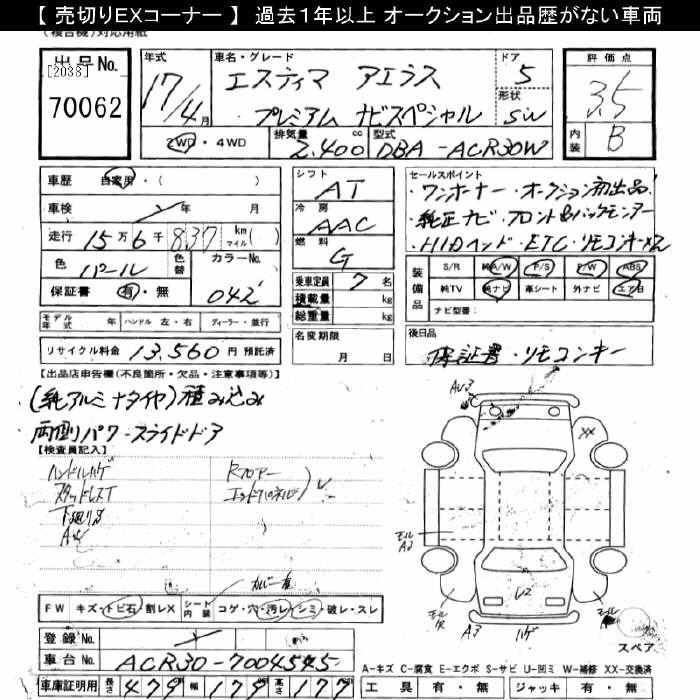 【 売切りEXコーナー 】 過去1年以上 オークション出品歴がない車両
(複合機)対応用紙
出品No.
[2038]
70062
年式
17/4月
車名・グレード
エスティマ アエラス
プレミアム ナビスペシャル
ドア
5
形状
SW
評価点
3.5
内装
B
2WD・4WD
排気量
2.400cc
型式
DBA-ACR30W
車歴 自家用・(
車検 年 月
走行 15万6千837 km マイル( )
色 パール 色替 カラーNo. 042
保証書 有・無
シフト
AT
冷房
AAC
燃料
G
乗車定員 7名
積載量 kg
総重量 kg
セールスポイント
・ワンオーナー・オークション初出品
・純正ナビ・フロント&バックモニター
・HIDヘッド・ETC・リモコンキー
装備品
S/R 純A/W P/S P/W ABS
純TV 純ナビ 革シート 外ナビ エアB
ナビ型番:
モデル年式 年 ハンドル 左・右 ディーラー・並行
リサイクル料金 13,560円 預託済
名変期限
月 日
後日品
保証書・リモコンキー
【出品店申告欄(不良箇所・欠品・注意事項等)】
(純アルミナタイヤ)積み込み
両側パワースライドドア
【検査員記入】
ハンドルハゲ
スタッドレスT
下廻りS
Rフロアー
エンドパネル
カバー
AU3
XX
モール
A3
モール
A3
ハゲ
スペア
FW キズ・トビ石・割レX シート内装 コゲ・穴・汚レ・シミ・破レ・スレ
登録No.
車台No. ACR30-7004545
車庫証明用 長さ 479 幅 179 高さ 177
A-キズ C-腐食 E-エクボ S-サビ U-凹ミ W-補修 XX-交換済
工具 有・無 ジャッキ 有・無